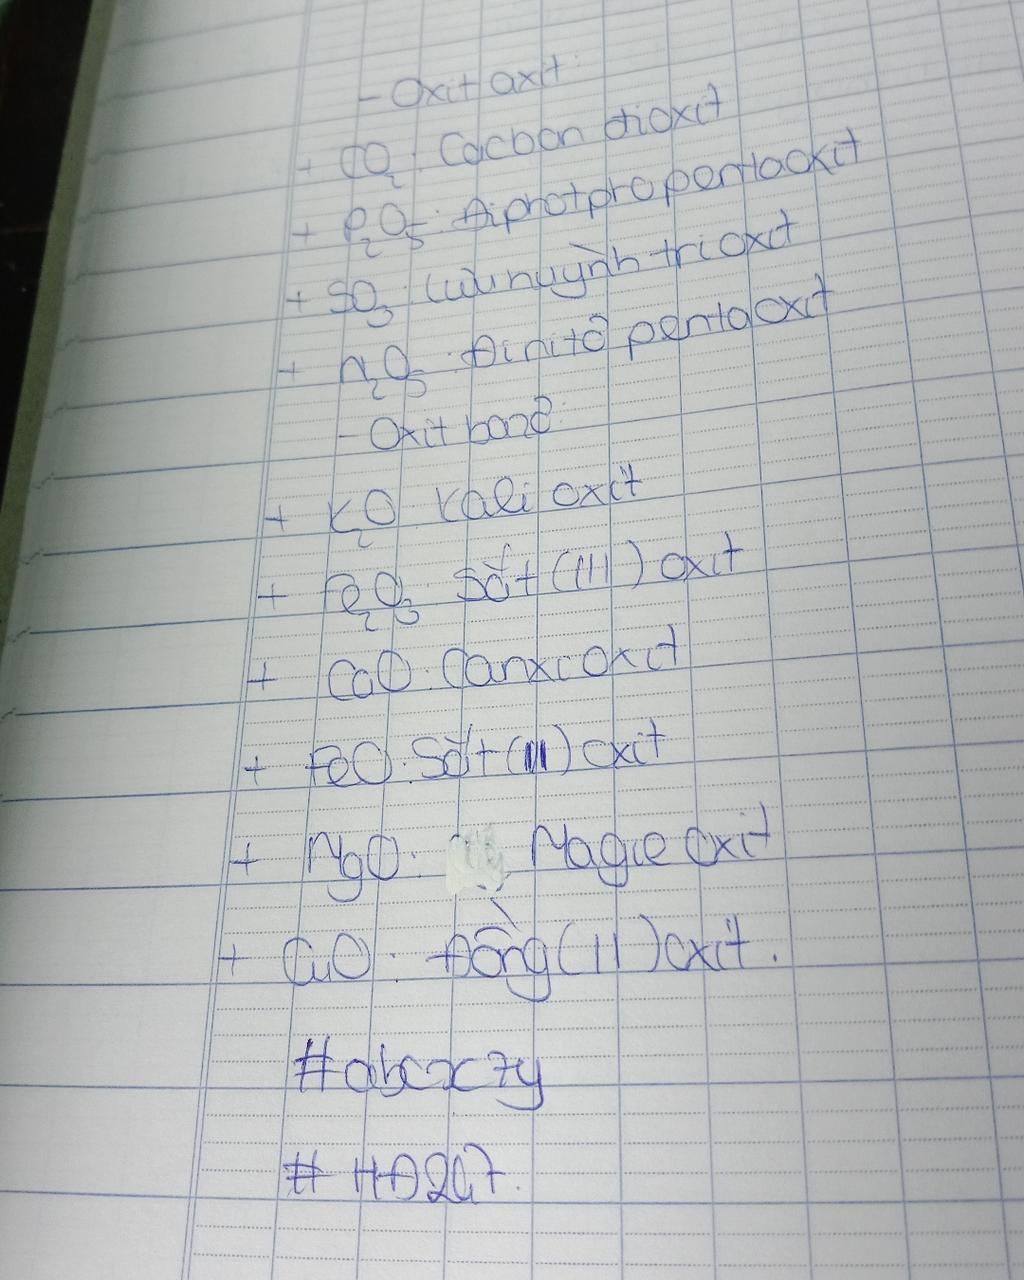 - Oxit axit:
+ CO2: Cacbon đioxit
+ P2O5: Điphotpho pentaoxit
+ SO3: Lưu huỳnh trioxit
+ N2O5: Đinitơ pentaoxit
- Oxit bazơ:
+ K2O: Kali oxit
+ Fe2O3: Sắt (III) oxit
+ CaO: Canxi oxit
+ FeO: Sắt (II) oxit
+ MgO: Magie oxit
+ CuO: Đồng (II) oxit.
#abcxzy
# HĐ247.